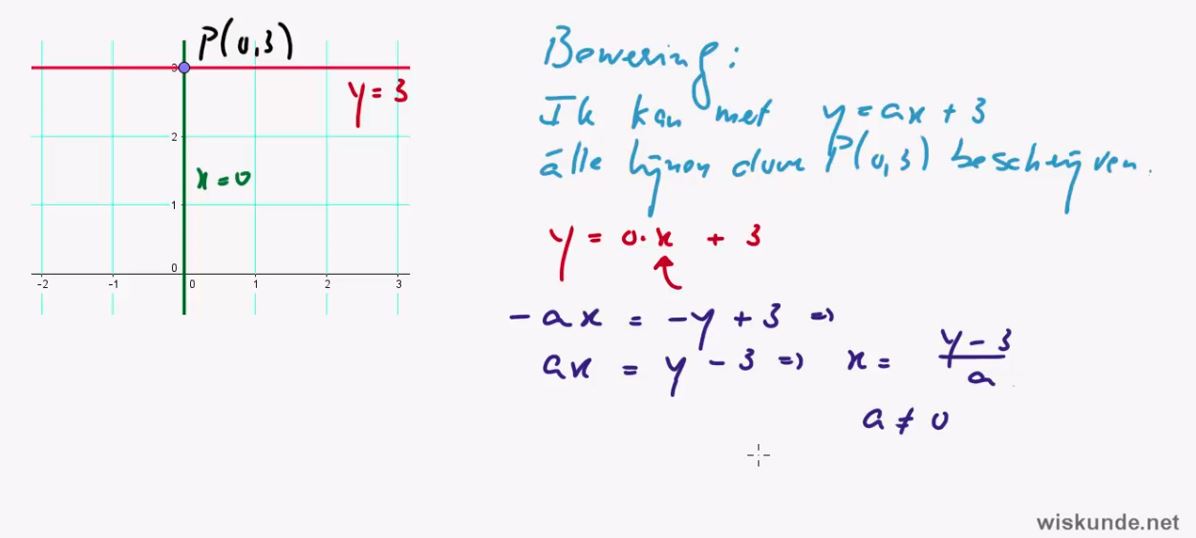 P(0,3)
3
y = 3
2
x = 0
1
0
-2 -1 0 1 2 3
Bewering:
Ik kan met y = ax + 3
álle lijnen door P(0,3) beschrijven.
y = 0·x + 3
-ax = -y + 3 =>
ax = y - 3 => x = (y - 3)/a
a ≠ 0
wiskunde.net